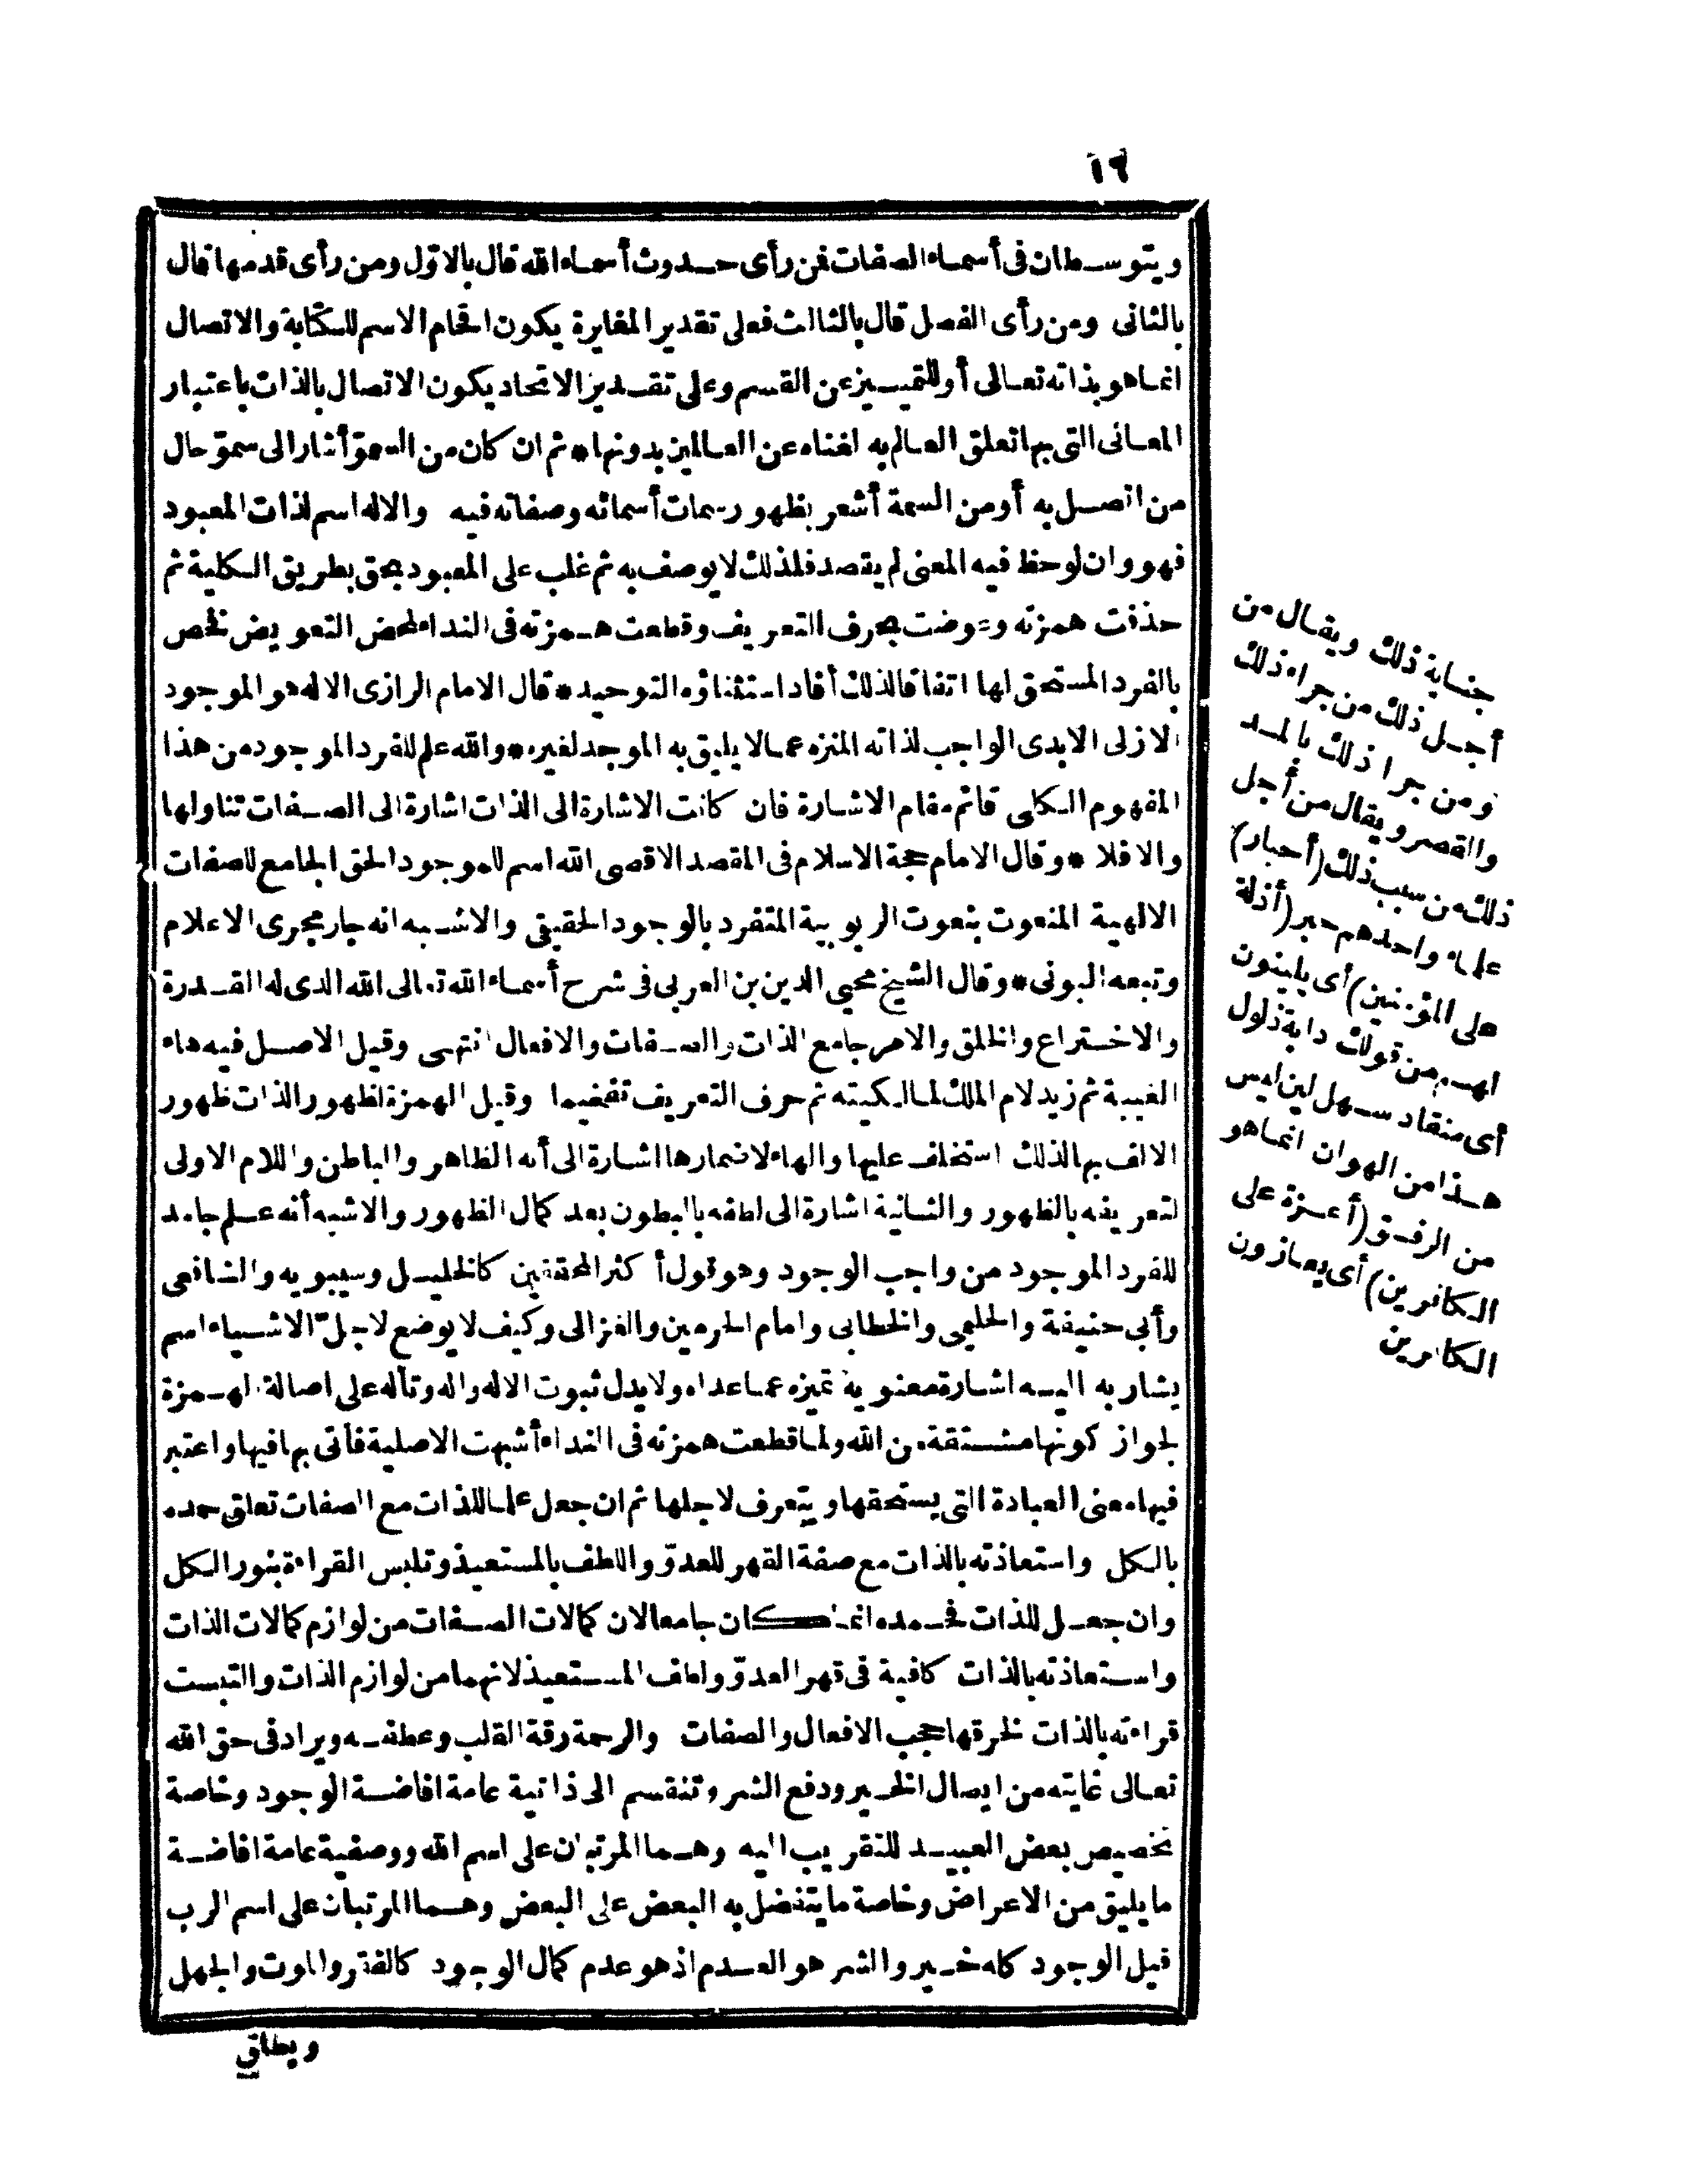 ١٦
ويتوسطان فى أسماء الصفات فن رأى حدوث أسماء الله قال بالاوّل ومن رأى قدمها قال
بالثانى ومن رأى الفصل قال بالثالث فعلى تقدير المغايرة يكون اقحام الاسم للكتابة والاتصال
انما هو بذاته تعالى أو للتمييز عن القسم وعلى تقدير الاتحاد يكون الاتصال بالذات باعتبار
المعانى التى بها تعلق العالم به لغناه عن العالمين بدونها * ثم ان كان من السموّ أشار الى سموّ حال
من اتصل به أو من السمة أشعر بظهور سمات أسمائه وصفاته فيه والاله اسم لذات المعبود
فهو وان لوحظ فيه المعنى لم يقصد فلذلك لا يوصف به ثم غلب على المعبود بحق بطريق الكلية ثم
حذفت همزته وعوضت بحرف التعريف وقطعت همزته فى النداء لمحض التعويض نخص
بالفرد المستحق لها اتفاقا لذلك أفاد استثناؤه التوحيد * قال الامام الرازى الاله هو الموجود
الازلى الابدى الواجب لذاته المنزه عما لا يليق به الموجد لغيره * والله علم للفرد الموجود من هذا
المفهوم الكلى قائم مقام الاشارة فان كانت الاشارة الى الذات اشارة الى الصفات تناولها
والا فلا * وقال الامام حجة الاسلام فى المقصد الاقصى الله اسم للموجود الحق الجامع لصفات
الالهية المنعوت بنعوت الربوبية المتفرد بالوجود الحقيقى والاشبه انه جار مجرى الاعلام
وتبعه البونى * وقال الشيخ محيى الدين بن العربى فى شرح أسماء الله تعالى الله الذى له القدرة
والاختراع والخلق والامر جامع الذات والصفات والافعال انتهى وقيل الاصل فيه هاء
الغيبة ثم زيد لام الملك لمالكيته ثم حرف التعريف تفخيما وقيل الهمزة لظهور الذات ظهور
الالف بها لذلك استخلف عليها والهاء لاضمارها اشارة الى أنه الظاهر والباطن واللام الاولى
لتعريفه بالظهور والثانية اشارة الى لطفه بالبطون بعد كمال الظهور والاشبه أنه علم جامد
للفرد الموجود من واجب الوجود وهو قول أكثر المحققين كالخليل وسيبويه والشافعى
وأبى حنيفة والحليمى والخطابى وامام الحرمين والغزالى وكيف لا يوضع لاجلّ الاشياء اسم
يشار به اليه اشارة معنوية تميزه عما عداه ولا يدل ثبوت الاله واله وتأله على اصالة الهمزة
لجواز كونها مشتقة من الله ولما قطعت همزته فى النداء أشبهت الاصلية فأتى بها فيها واعتبر
فيها معنى العبادة التى يستحقها ويتعرف لاجلها ثم ان جعل علما للذات مع الصفات تعلق حمده
بالكل واستعاذته بالذات مع صفة القهر للعدوّ واللطف بالمستعيذ وتلبس القراءة بنور الكل
وان جعل للذات فحمده انما كان جامعا لان كمالات الصفات من لوازم كمالات الذات
واستعاذته بالذات كافية فى قهر العدوّ ولطف المستعيذ لانهما من لوازم الذات والتبست
قراءته بالذات لخرقها حجب الافعال والصفات والرحمة رقة القلب وعطفه ويراد فى حق الله
تعالى غايته من ايصال الخير ودفع الشر وتنقسم الى ذاتية عامة افاضة الوجود وخاصة
تخصيص بعض العبيد للتقريب اليه وهما المرتبان على اسم الله ووصفية عامة افاضة
ما يليق من الاعراض وخاصة ما يتفضل به البعض على البعض وهما المرتبان على اسم الرب
قيل الوجود كله خير والشر هو العدم اذ هو عدم كمال الوجود كالفقر والموت والجهل
ويطلق
جناية ذلك ويقال من
أجل ذلك من جراء ذلك
ومن جرا ذلك بالمد
والقصر ويقال من أجل
ذلك من سبب ذلك (أحبار)
علماء واحدهم حبر (أذلة
على المؤمنين) أى يلينون
لهم من قولك دابة ذلول
أى منقاد سهل لين ليس
هذا من الهوان انما هو
من الرفق (أعزة على
الكافرين) أى يعازون
الكافرين